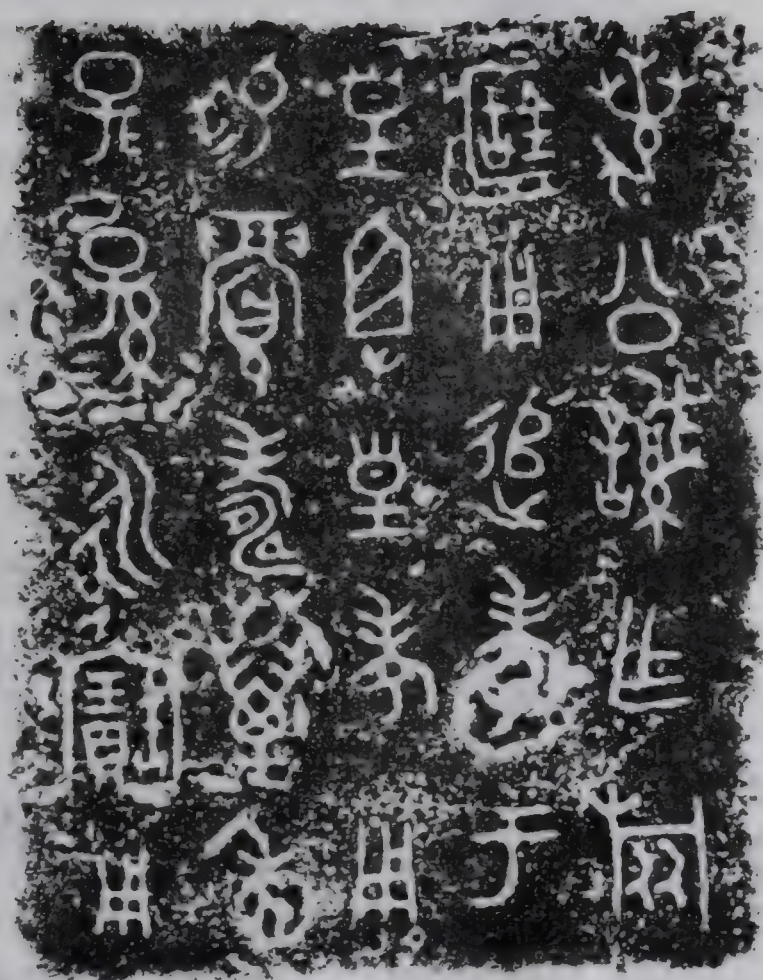 公諴乍旅
簠用追孝于
皇且皇考用
賜眉壽萬年
子＝孫＝永寶用